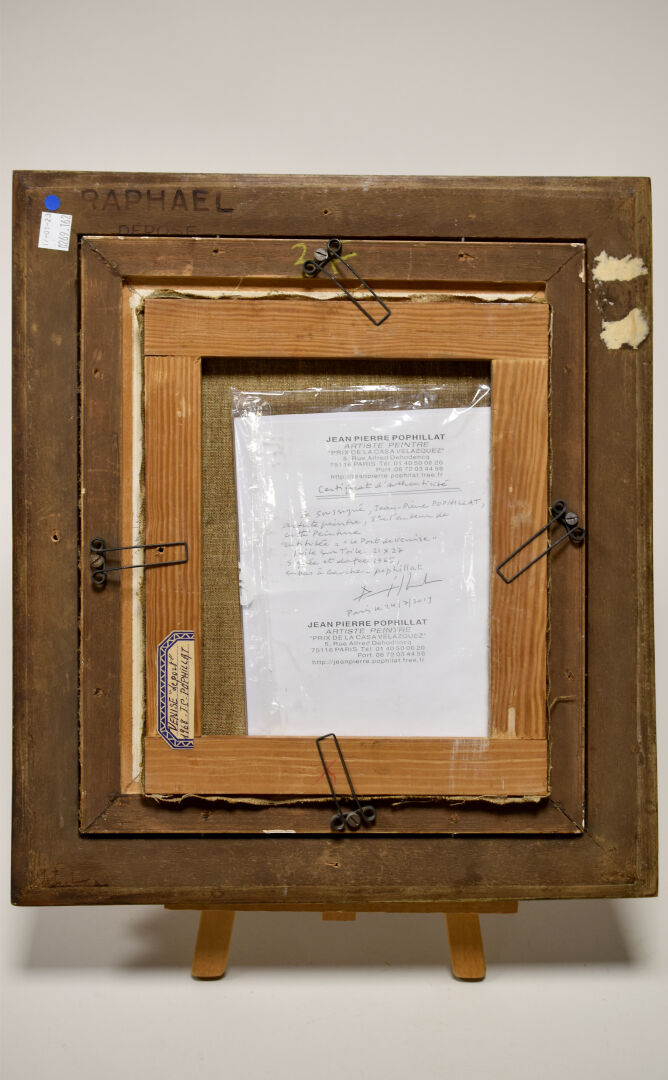 RAPHAEL
DEPOSE
17-01-23
0269.162
JEAN PIERRE POPHILLAT
ARTISTE PEINTRE
"PRIX DE LA CASA VELAZQUEZ"
5, Rue Alfred Dehodencq
75116 PARIS Tél. 01 40 50 06 26
Port. 06 72 03 44 56
http://jeanpierre.pophillat.free.fr
Certificat d'authenticité
Je soussigné, Jean-Pierre POPHILLAT,
artiste peintre, être l'auteur de
cette Peinture
intitulée "Le Port de Venise"
huile sur Toile 21 x 27
Signée et datée
en bas à gauche pophillat
Paris le 24/7/2019
JEAN PIERRE POPHILLAT
ARTISTE PEINTRE
"PRIX DE LA CASA VELAZQUEZ"
5, Rue Alfred Dehodencq
75116 PARIS Tél. 01 40 50 06 26
Port. 06 72 03 44 56
http://jeanpierre.pophillat.free.fr
VENISE "le port"
1968 J.P. POPHILLAT